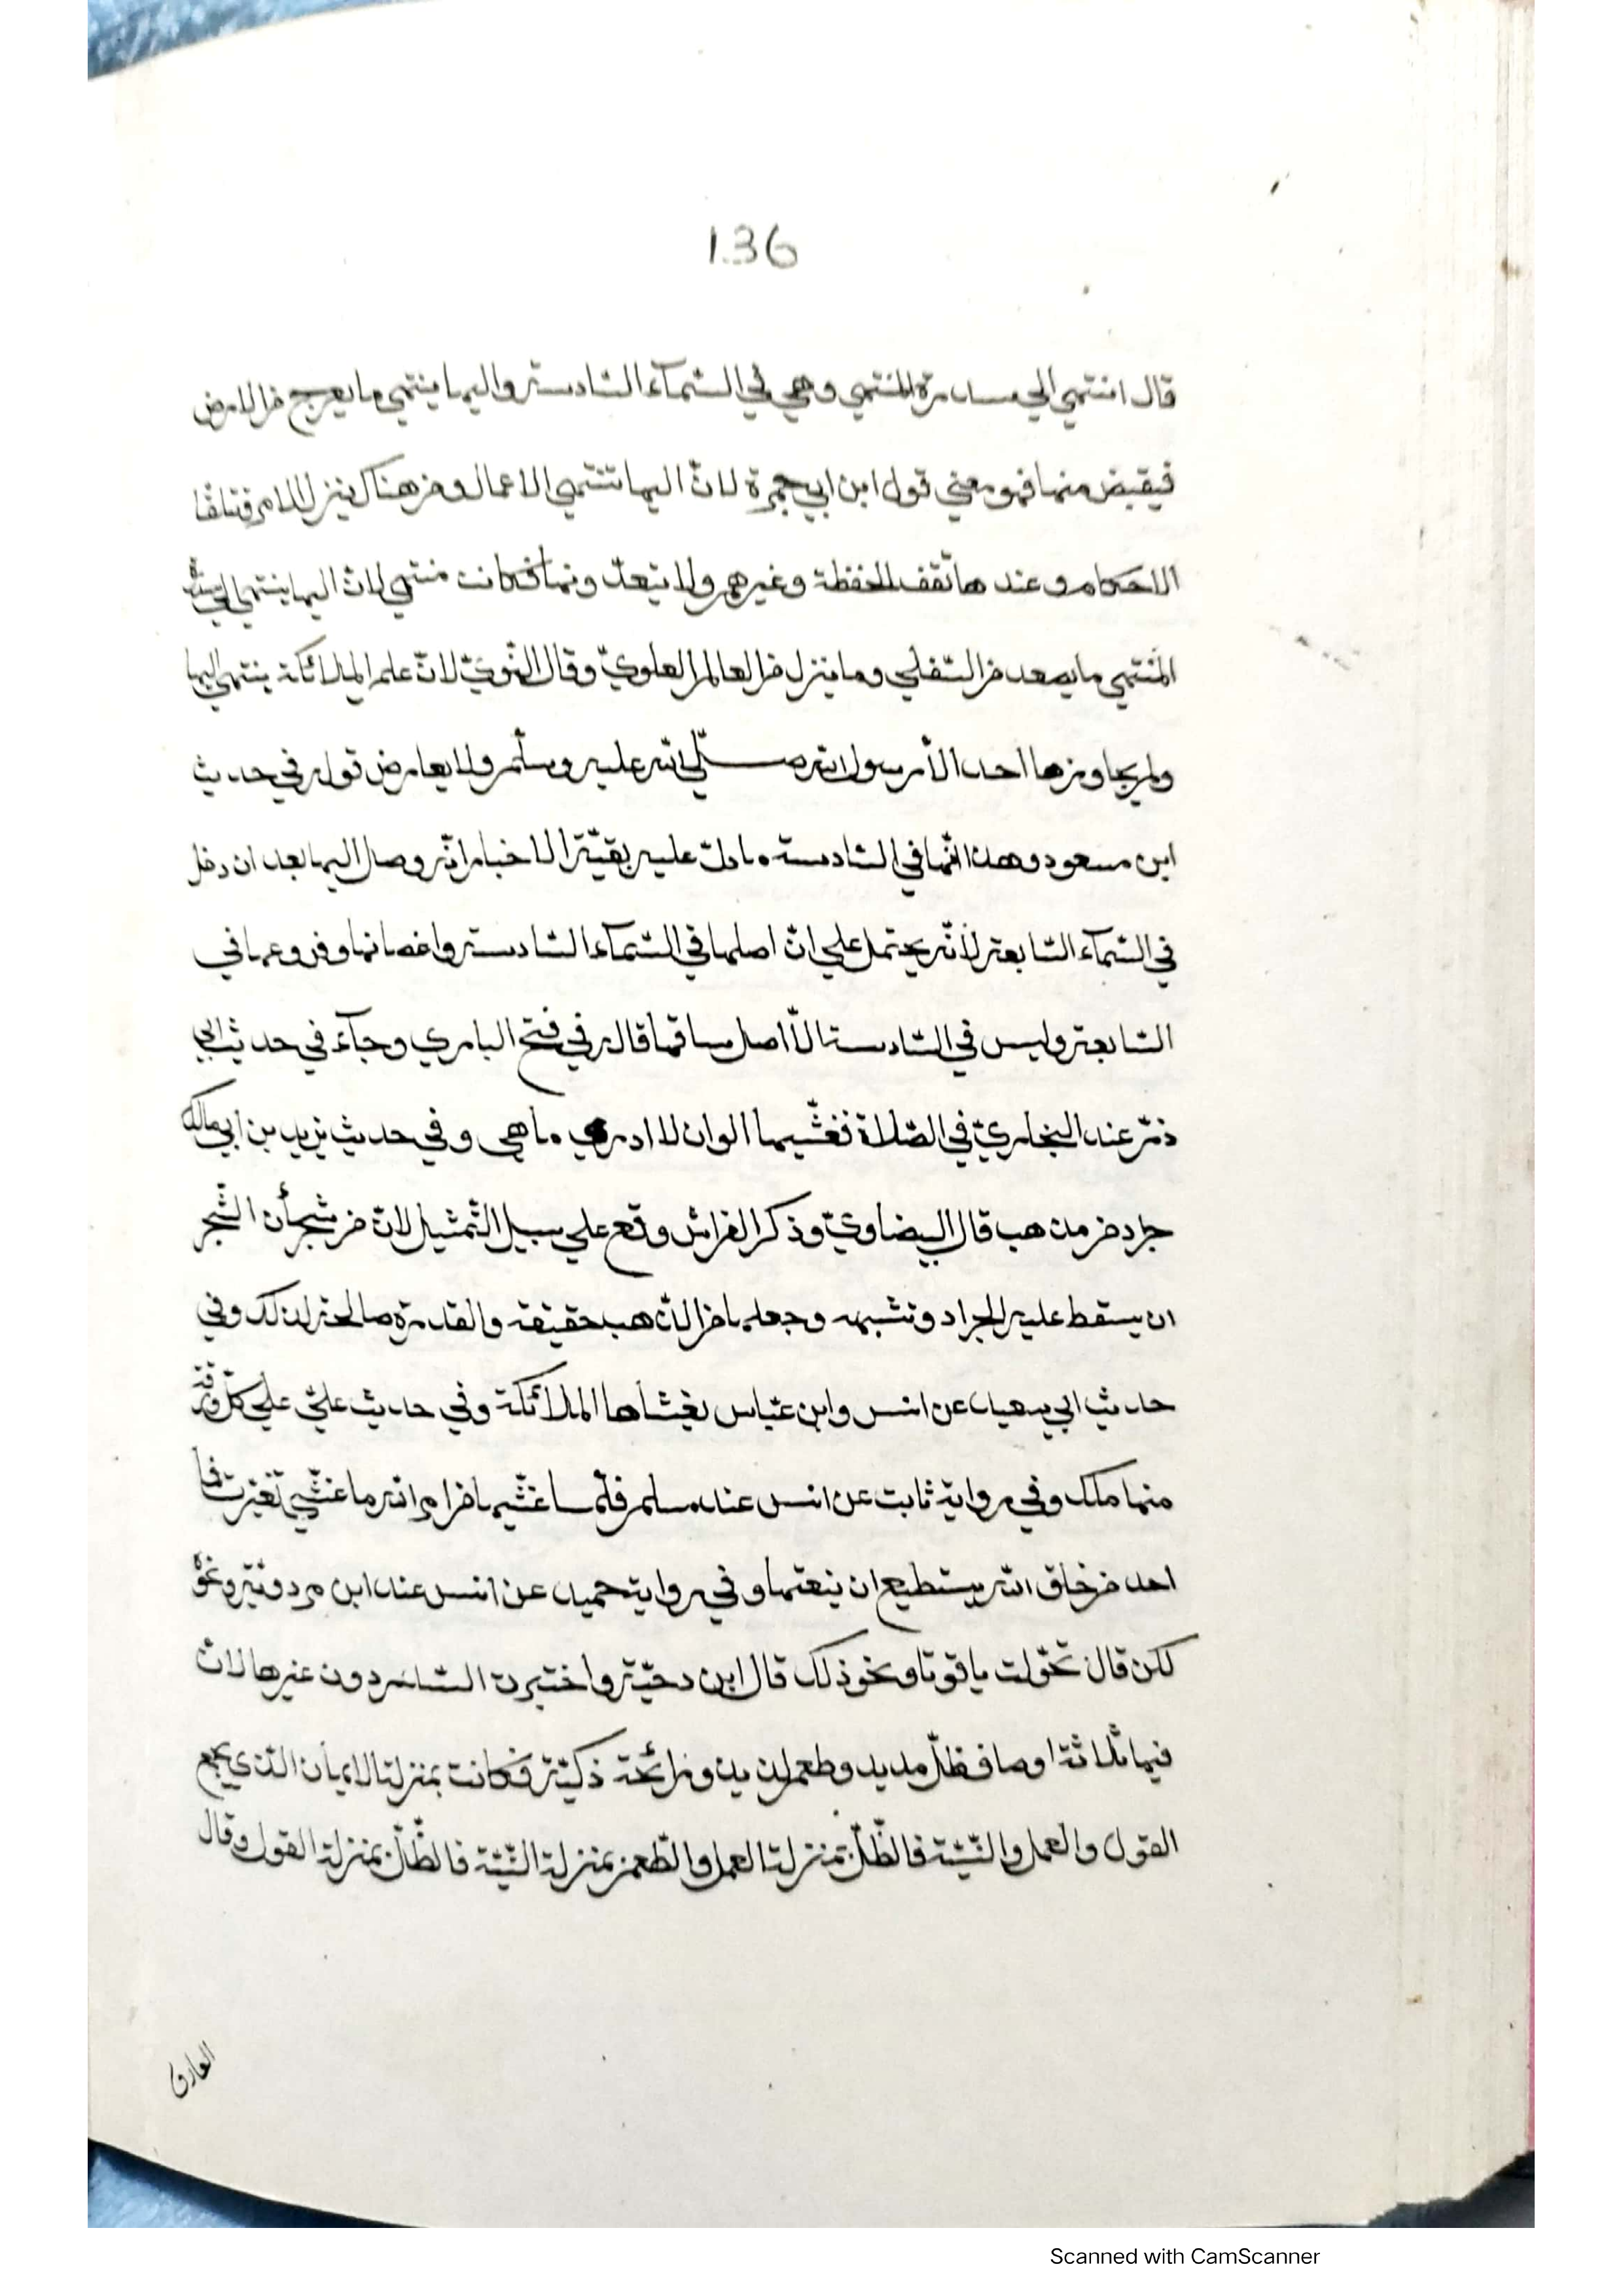 136
قال انتهي الي سدرة المنتهي وهي في السّمآء السّادسة واليها ينتهي ما يعرج من الارض
فيقبض منها فهو معني قول ابن ابي جمرة لانّ اليها تنتهي الاعمال ومن هناك ينزل الامر فتتلقّا
الاحكام وعندها تقف الحفظة وغيرهم ولا يتعدّونها فكانت منتهي لانّ اليها ينتهي الي سدرة
المنتهي ما يصعد من السّفلي وما ينزل من العالم العلويّ وقال النّوويّ لانّ علم الملائكة ينتهي اليها
ولم يجاوزها احد الاّ رسول الله صلّي الله عليه وسلّم ولا يعارض قوله في حديث
ابن مسعود وهذا انّها في السّادسة ما دلّ عليه بقيّة الاخبار انّه وصل اليها بعد ان دخل
في السّمآء السّابعة لأنّه يحتمل علي انّ اصلها في السّمآء السّادسة واغصانها وفروعها في
السّابعة وليس في السّادسة الاّ اصل ساقها قاله في فتح الباري وجآء في حديث ابي
ذرّ عند البخاريّ في الصّلاة فغشّيها الوان لا ادري ما هي وفي حديث يزيد بن ابي مالك
جراد من ذهب قال البيضاويّ وذكر الفراش وقع علي سبيل التّمثيل لانّ من شجأن الشّجر
ان يسقط عليه الجراد وتشبهه وجعلها من الذّهب حقيقة والقدرة صالحة لذلك وفي
حديث ابي سعيد عن انس وابن عبّاس يغشاها الملائكة وفي حديث عليّ علي كلّ ورقة
منها ملك وفي رواية ثابت عن انس عند مسلم فلمّا غشّيها من امر الله ما غشّي تغيّرت فما
احد من خلق الله يستطيع ان ينعتها وفي رواية حميد عن انس عند ابن مردويه ونحوه
لكن قال تحوّلت ياقوتا ونحو ذلك قال ابن دحيّة واختيرت السّدرة دون غيرها لانّ
فيها ثلاثة اوصاف ظلّ مديد وطعم لذيذ ورائحة ذكيّة فكانت بمنزلة الايمان الّذي يجمع
القول والعمل والنّيّة فالظّلّ بمنزلة العمل والطّعم بمنزلة النّيّة فالظّلّ بمنزلة القول وقال
العارف
Scanned with CamScanner